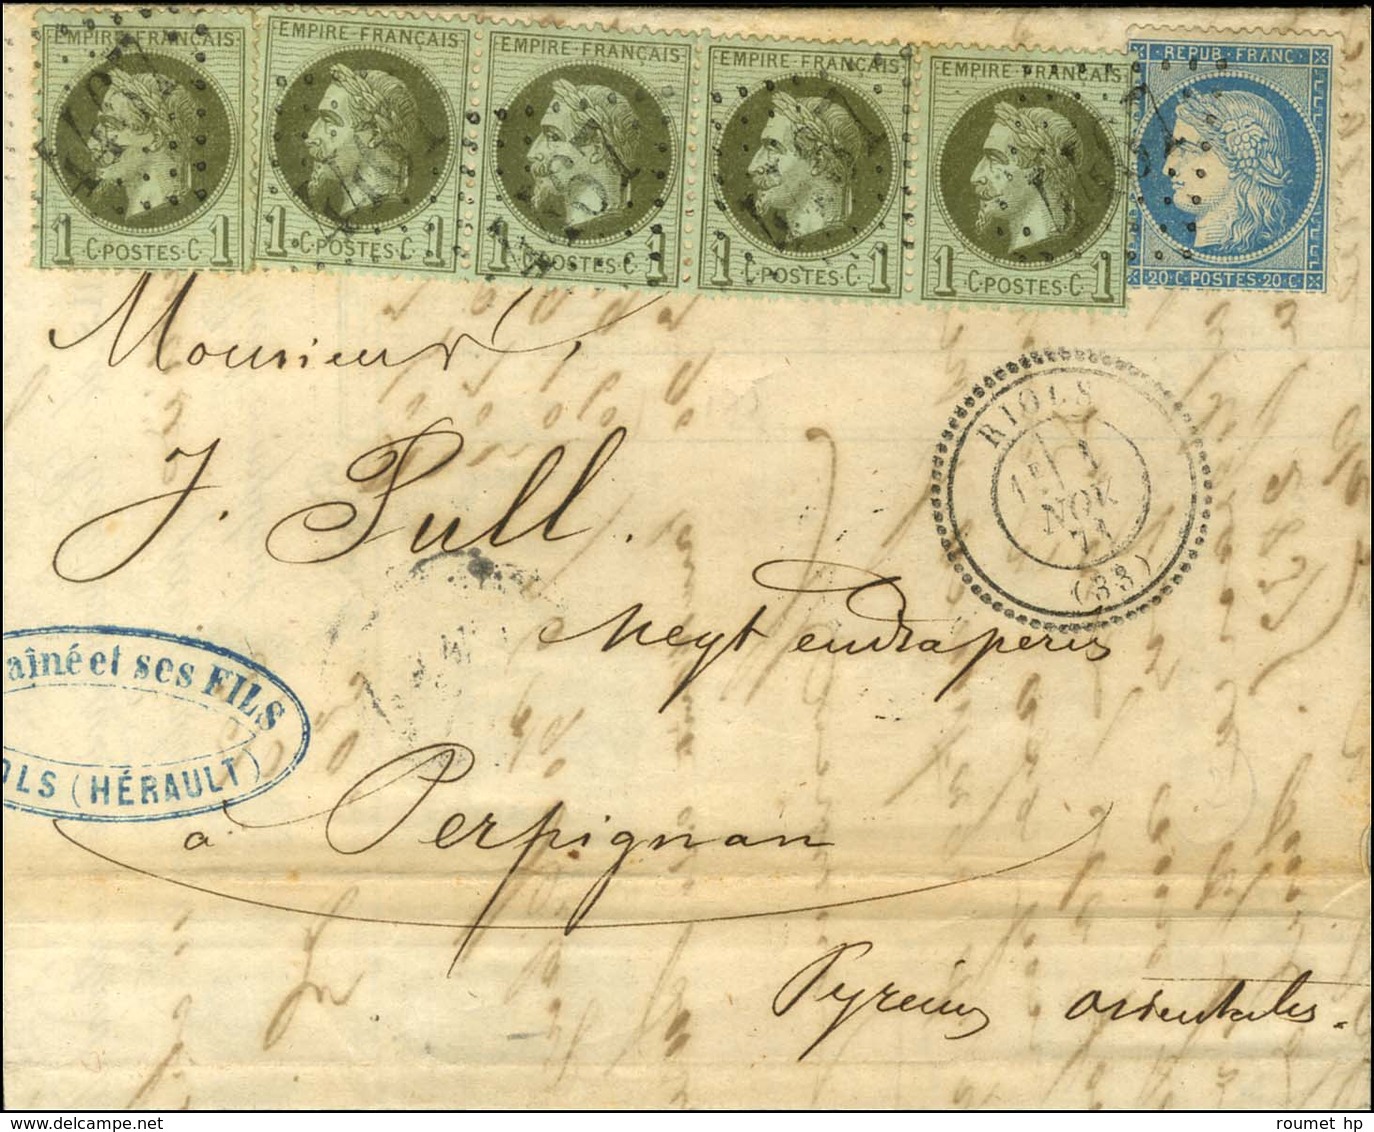 EMPIRE FRANÇAIS EMPIRE FRANÇAIS EMPIRE FRANÇAIS EMPIRE FRANÇAIS EMPIRE FRANÇAIS REPUB. FRANC.
1 C. POSTES. C 1 1 C. POSTES. C 1 1 C. POSTES. C 1 1 C. POSTES. C 1 1 C. POSTES. C 1 20. C. POSTES. 20. C.
Monsieur
RIOLS
1E 1
NOV.
71
(33)
J. Pull.
Negt endraperis
aîné et ses FILS
OLS (HÉRAULT)
a Perpignan
Pyreines orientales.
www.delcampe.net
roumet hp